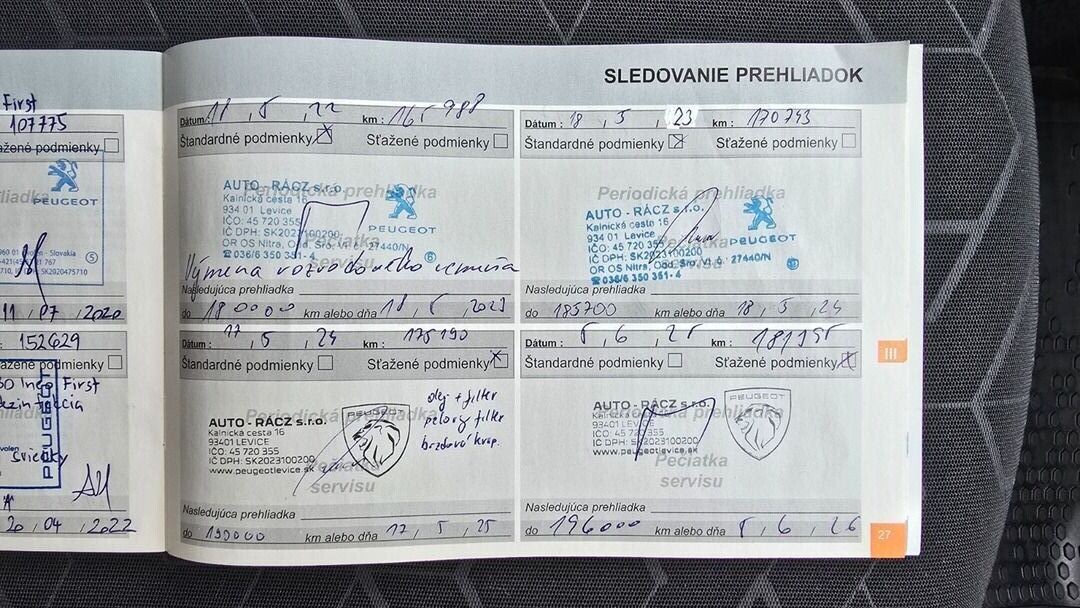 First
107775
ažené podmienky
PEUGEOT
Slovakia
SK2020475710
11 . 07 . 2020
152629
ažené podmienky
First
PEUGEOT
Sviečky
20 . 04 . 2022
SLEDOVANIE PREHLIADOK
Dátum : 18 . 5 . 22 km : 165 988
Štandardné podmienky Sťažené podmienky
Periodická prehliadka
AUTO - RÁCZ s.r.o.
Kalnická cesta 16
934 01 Levice
IČO: 45 720 355
IČ DPH: SK2023100200
OR OS Nitra, Odd. Sro, Vl. č. 27440/N
036/6 350 351-4
PEUGEOT
6
Pečiatka
servisu
Výmena rozvodového remeňa
Nasledujúca prehliadka
do 180000 km alebo dňa 18 . 5 . 2023
Dátum : 18 . 5 . 23 km : 170743
Štandardné podmienky Sťažené podmienky
Periodická prehliadka
AUTO - RÁCZ s.r.o.
Kalnická cesta 16
934 01 Levice
IČO: 45 720 355
IČ DPH: SK2023100200
OR OS Nitra, Odd. Sro, Vl. č. 27440/N
036/6 350 351-4
PEUGEOT
Pečiatka
servisu
Nasledujúca prehliadka
do 185700 km alebo dňa 18 . 5 . 24
Dátum : 17 . 5 . 24 km : 175190
Štandardné podmienky Sťažené podmienky
Periodická prehliadka
AUTO - RÁCZ s.r.o.
Kalnická cesta 16
93401 LEVICE
IČO: 45 720 355
IČ DPH: SK2023100200
www.peugeotlevice.sk
PEUGEOT
olej + filter
peľový filter
brzdová kvap.
Pečiatka
servisu
Nasledujúca prehliadka
do 190000 km alebo dňa 17 . 5 . 25
Dátum : 5 . 6 . 25 km : 181195
Štandardné podmienky Sťažené podmienky
Periodická prehliadka
AUTO - RÁCZ s.r.o.
Kalnická cesta 16
93401 LEVICE
IČO: 45 720 355
IČ DPH: SK2023100200
www.peugeotlevice.sk
PEUGEOT
Pečiatka
servisu
Nasledujúca prehliadka
do 196000 km alebo dňa 5 . 6 . 26
III
27